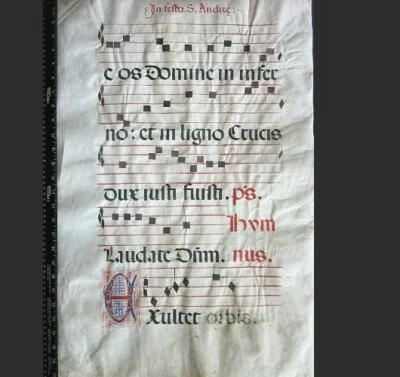 In festo. S. Andreę:
c os Domine in infer
no: et in ligno Crucis
dux iusti fuisti. ps.
Hym
Laudate Dñm. nus.
Exultet orbis.